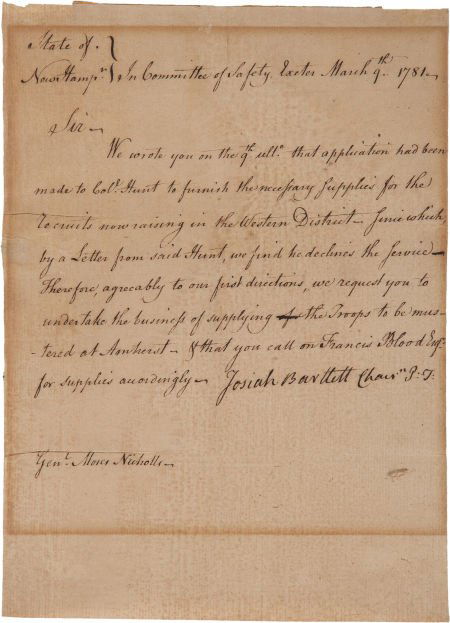 State of }
New Hampr } In Committee of Safety Exeter March 9th 1781
Sir
We wrote you on the 9th ulto that application had been
made to Colo Hunt to furnish the necessary supplies for the
recruits now raising in the Western District – since which,
by a Letter from said Hunt, we find he declines the Service –
Therefore, agreeably to our first directions, we request you to
undertake the business of supplying the Troops to be mus-
-tered at Amherst – & that you call on Francis Blood Esqr
for supplies accordingly – Josiah Bartlett Chairn P: T:
Genl Moses Nicholls